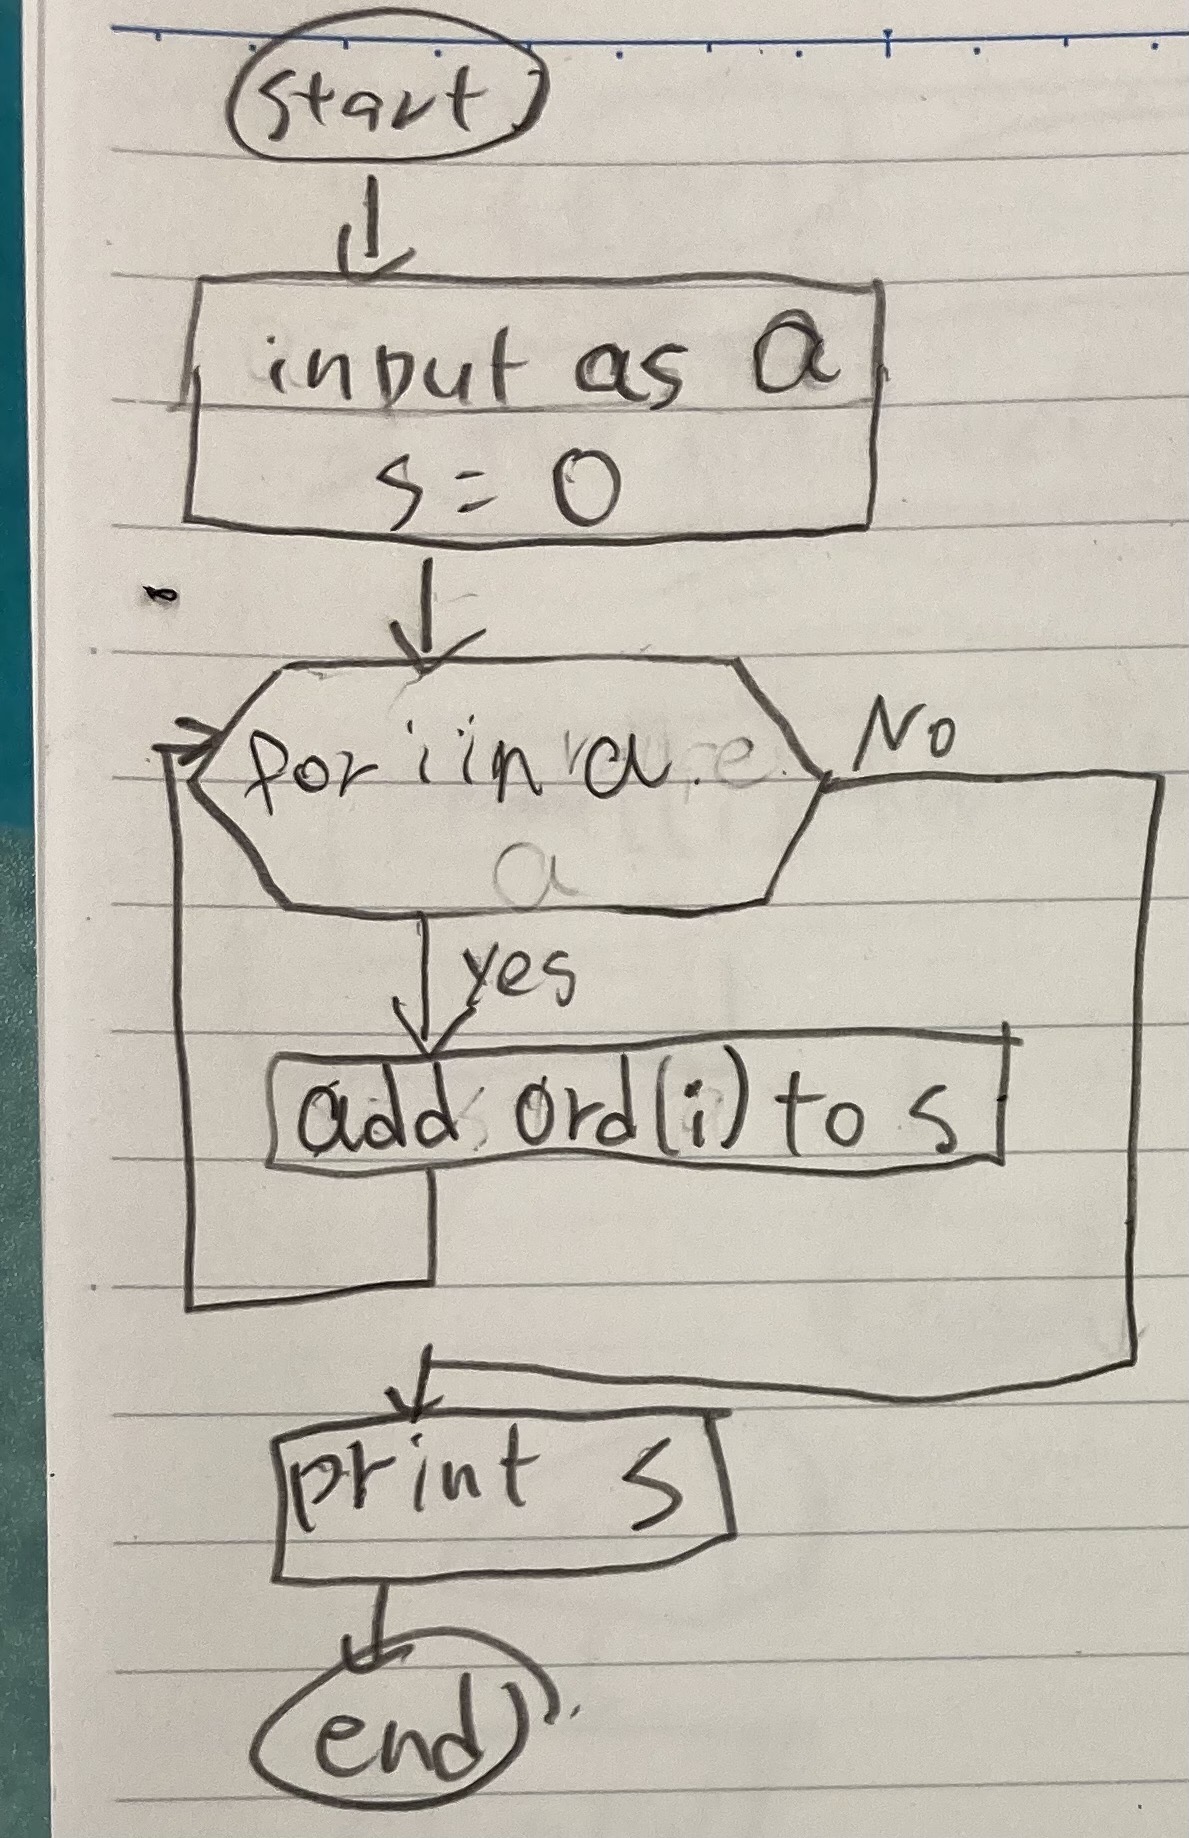 start
input as a
s = 0
for i in a
No
yes
add ord(i) to s
print s
end